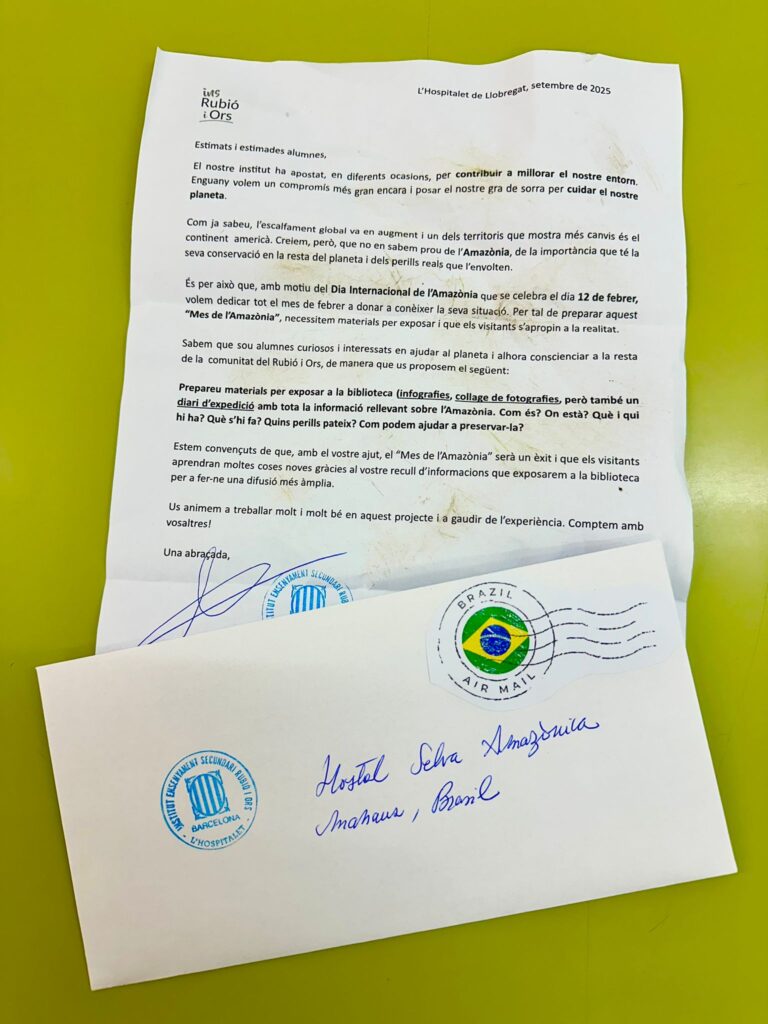 ins
Rubió
i Ors
L'Hospitalet de Llobregat, setembre de 2025
Estimats i estimades alumnes,
El nostre institut ha apostat, en diferents ocasions, per contribuir a millorar el nostre entorn.
Enguany volem un compromís més gran encara i posar el nostre gra de sorra per cuidar el nostre
planeta.
Com ja sabeu, l'escalfament global va en augment i un dels territoris que mostra més canvis és el
continent americà. Creiem, però, que no en sabem prou de l'Amazònia, de la importància que té la
seva conservació en la resta del planeta i dels perills reals que l'envolten.
És per això que, amb motiu del Dia Internacional de l'Amazònia que se celebra el dia 12 de febrer,
volem dedicar tot el mes de febrer a donar a conèixer la seva situació. Per tal de preparar aquest
"Mes de l'Amazònia", necessitem materials per exposar i que els visitants s'apropin a la realitat.
Sabem que sou alumnes curiosos i interessats en ajudar al planeta i alhora conscienciar a la resta
de la comunitat del Rubió i Ors, de manera que us proposem el següent:
Prepareu materials per exposar a la biblioteca (infografies, collage de fotografies, però també un
diari d'expedició amb tota la informació rellevant sobre l'Amazònia. Com és? On està? Què i qui
hi ha? Què s'hi fa? Quins perills pateix? Com podem ajudar a preservar-la?
Estem convençuts de que, amb el vostre ajut, el "Mes de l'Amazònia" serà un èxit i que els visitants
aprendran moltes coses noves gràcies al vostre recull d'informacions que exposarem a la biblioteca
per a fer-ne una difusió més àmplia.
Us animem a treballar molt i molt bé en aquest projecte i a gaudir de l'experiència. Comptem amb
vosaltres!
Una abraçada,
TITUT ENSENYAMENT SECUNDARI RUBI
BRAZIL
AIR MAIL
INSTITUT ENSENYAMENT SECUNDARI RUBIO I ORS
BARCELONA
- L'HOSPITALET -
Hostal Selva Amazònica
Manaus, Brasil